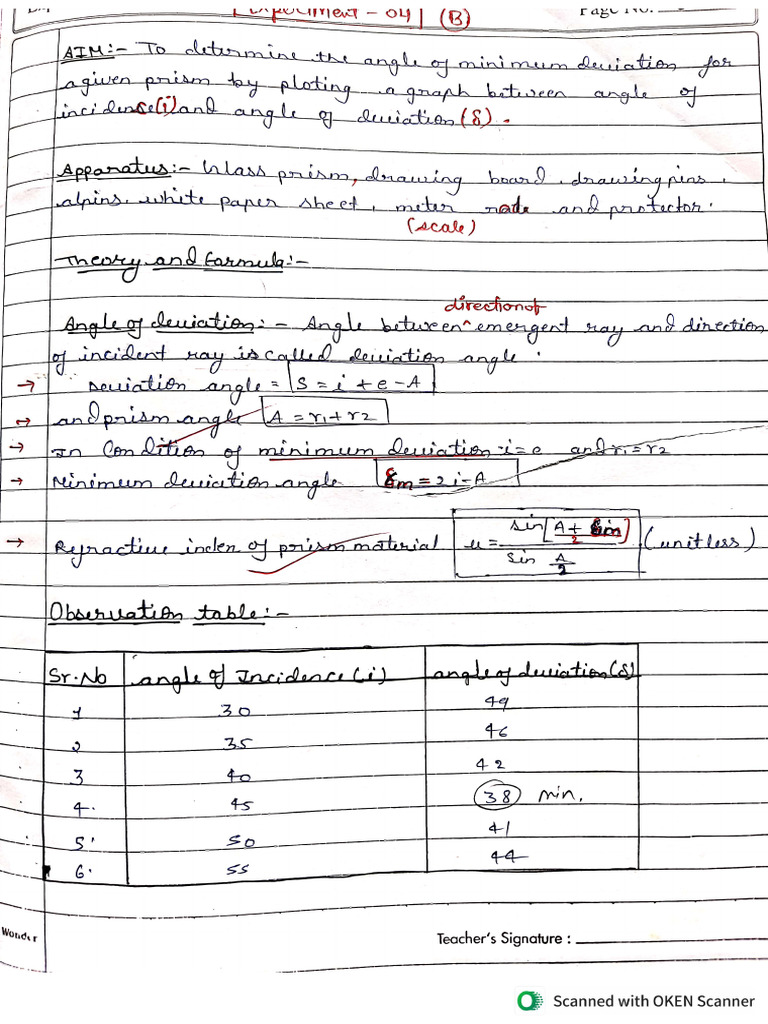 Experiment - 04 (B)
Page No.
AIM:- To determine the angle of minimum deviation for
a given prism by ploting a graph between angle of
incidense(i) and angle of deviation (δ).
Apparatus:- Glass prism, drawing board, drawing pins,
alpins, white paper sheet, meter rode and protector.
(scale)
Theory and Formula:-
direction of
Angle of deviation:- Angle between ^ emergent ray and direction
of incident ray is called deviation angle.
→ Deviation angle = S = i + e - A
→ and prism angle A = r1 + r2
→ In Condition of minimum deviation - i = e and r1 = r2
→ Minimum deviation angle δm = 2i - A
→ Refractive index of prism material u = sin[A + δm / 2] / sin A/2 (unit less)
Observation table:-
Sr.No angle of Incidence (i) angle of deviation (δ)
1 30 49
2 35 46
3 40 42
4. 45 38 min.
5. 50 41
6. 55 44
Wonder
Teacher's Signature :
Scanned with OKEN Scanner